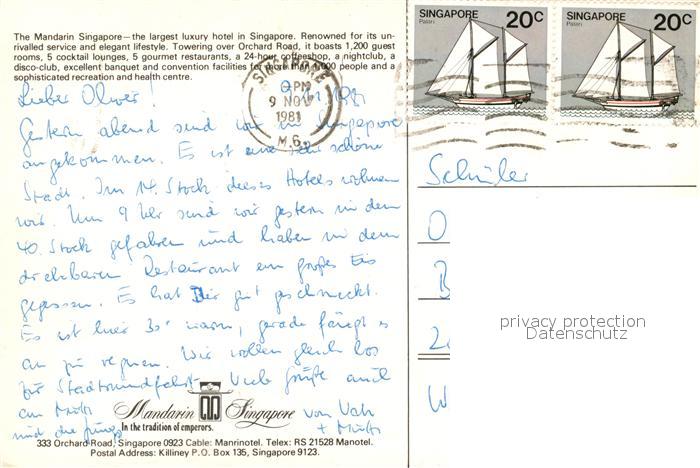 The Mandarin Singapore—the largest luxury hotel in Singapore. Renowned for its un-
rivalled service and elegant lifestyle. Towering over Orchard Road, it boasts 1,200 guest
rooms, 5 cocktail lounges, 5 gourmet restaurants, a 24-hour coffeeshop, a nightclub, a
disco-club, excellent banquet and convention facilities for more than 1,000 people and a
sophisticated recreation and health centre.
SINGAPORE
PM
9 NOV
1981
M.6.
SINGAPORE 20c
Palari
SINGAPORE 20c
Palari
Lieber Oliver!
Gestern abend sind wir in Singapore
angekommen. Es ist eine sehr schöne
Stadt. Im 14. Stock dieses Hotels wohnen
wir. Um 9 Uhr sind wir gestern in den
40. Stock gefahren und haben in dem
drehbaren Restaurant ein großes Eis
gegessen. Es hat gut geschmeckt.
Es ist hier 30° warm, gerade fängt es
an zu regnen. Wir wollen gleich los
zur Stadtrundfahrt. Viele Grüße auch
an
und die Jungs von
+
Schüler
O
B
2
W
privacy protection
Datenschutz
Mandarin Singapore
In the tradition of emperors.
333 Orchard Road, Singapore 0923 Cable: Manrinotel. Telex: RS 21528 Manotel.
Postal Address: Killiney P.O. Box 135, Singapore 9123.